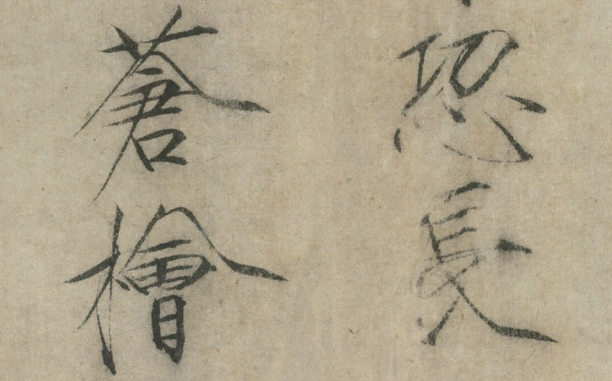 恐長
蒼檜